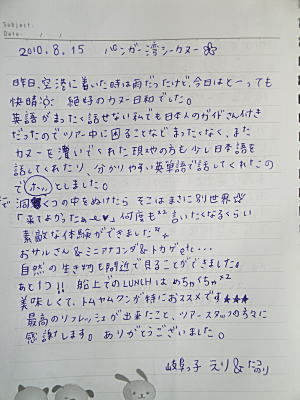 Subject:
Date: / /
2010.8.15 パンガー湾シーカヌー
昨日、空港に着いた時は雨だったけど、今日はとーっても
快晴 絶好のカヌー日和でした。
英語がまったく話せない私でも日本人のガイドさん付き
だったのでツアー中に困ることなどまったくなく、また
カヌーを漕いでくれた現地の方も少し日本語を
話してくれたり、分かりやすい英単語で話してくれたの
で ホッ としました。
洞くつの中をぬけたら そこはまさに別世界☆
「来てよかったぁ〜♥」何度も ×2 言いたくなるくらい
素敵な体験ができました
おサルさん&ミニアナコンダ&トカゲetc…
自然の生き物も間近で見ることができました。
あと1つ!! 船上でのLUNCHはめちゃくちゃ×2
美味しくて、トムヤムクンが特におススメです★★★
最高のリフレッシュが出来たこと、ツアースタッフの方々に
感謝します。ありがとうございました。
岐阜っ子 えり&